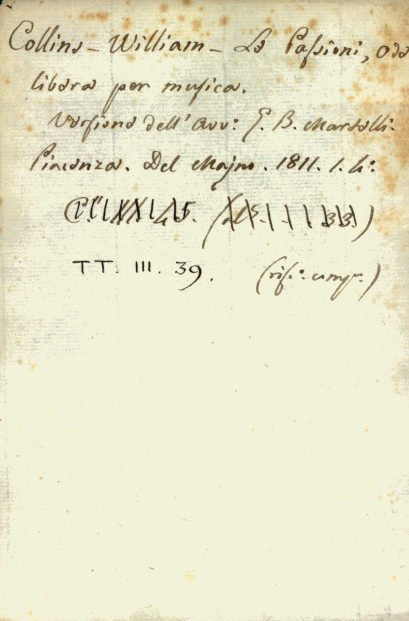 Collins - William - Le Passioni, ode
libera per musica.
Versione dell' Avv: G. B. Martelli.
Piacenza. Del Majno. 1811. 1. 4°.
TT. III. 39. (rif.° comp.)